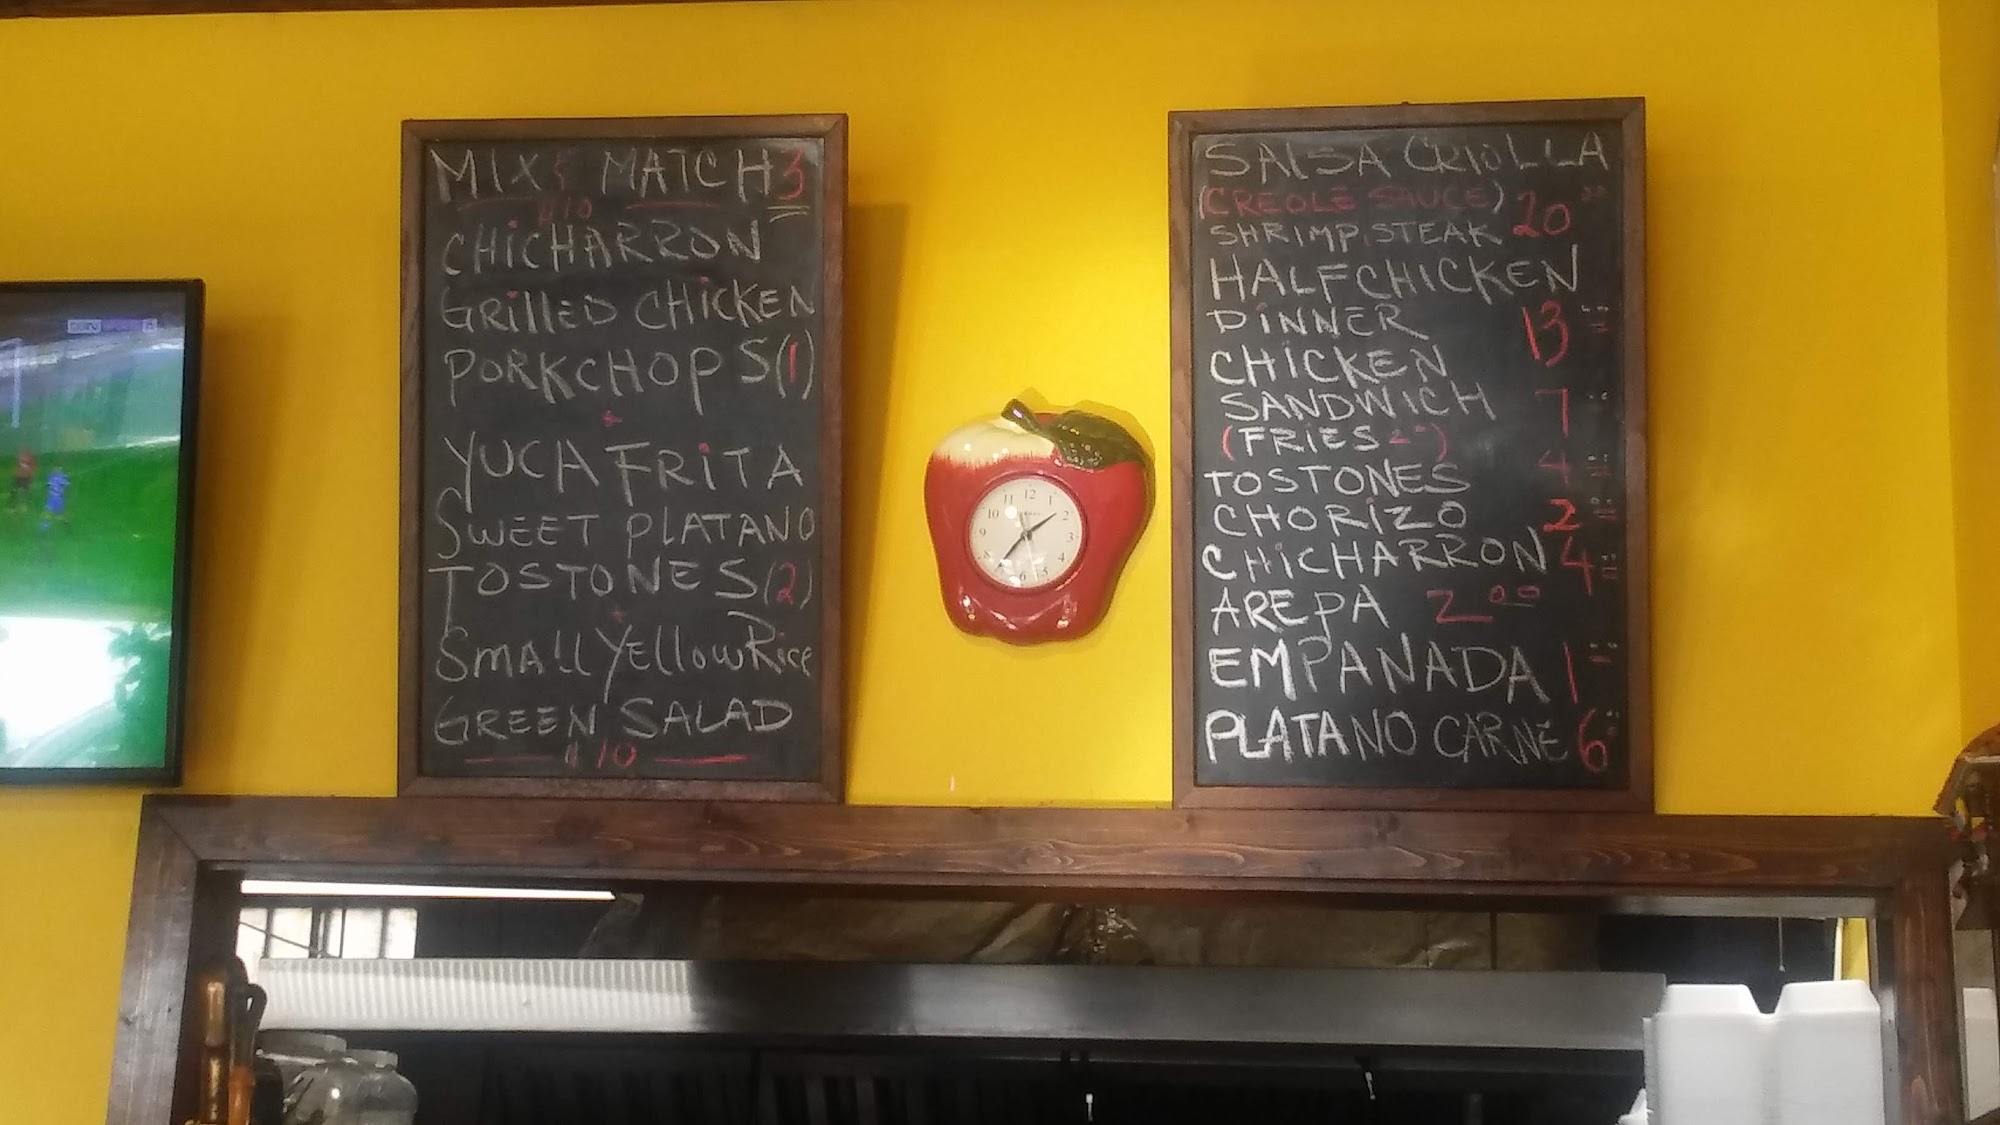 MIX & MATCH 3
$10
CHICHARRON
GRILLED CHICKEN
PORKCHOPS (1)
+
YUCA FRITA
SWEET PLATANO
TOSTONES (2)
+
SMALL YELLOW RICE
GREEN SALAD
$10
12
11 1
10 2
9 3
8 4
6 5
SALSA CRIOLLA
(CREOLE SAUCE)
SHRIMP, STEAK 20
HALF CHICKEN
DINNER 13
CHICKEN
SANDWICH 7
(FRIES 2)
TOSTONES 4
CHORIZO 2
CHICHARRON 4
AREPA 2.00
EMPANADA 1
PLATANO CARNE 6
beIN